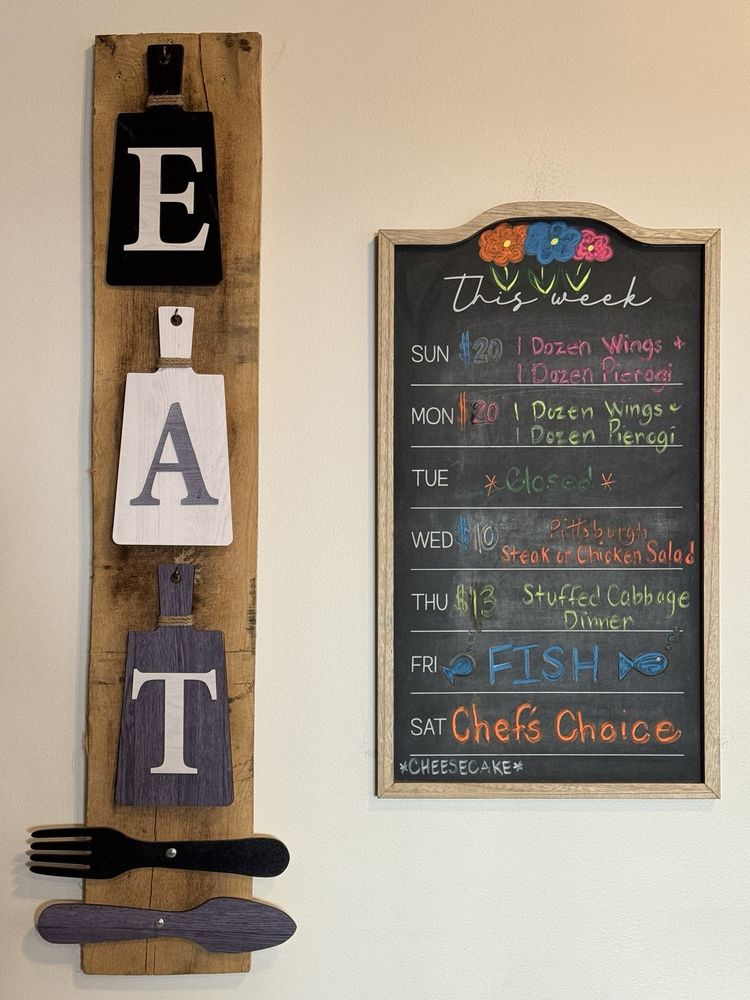 E
A
T
This week
SUN $20 1 Dozen Wings +
1 Dozen Pierogi
MON $20 1 Dozen Wings +
1 Dozen Pierogi
TUE *Closed*
WED $10 Pittsburgh
Steak or Chicken Salad
THU $13 Stuffed Cabbage
Dinner
FRI FISH
SAT Chef's Choice
*CHEESECAKE*